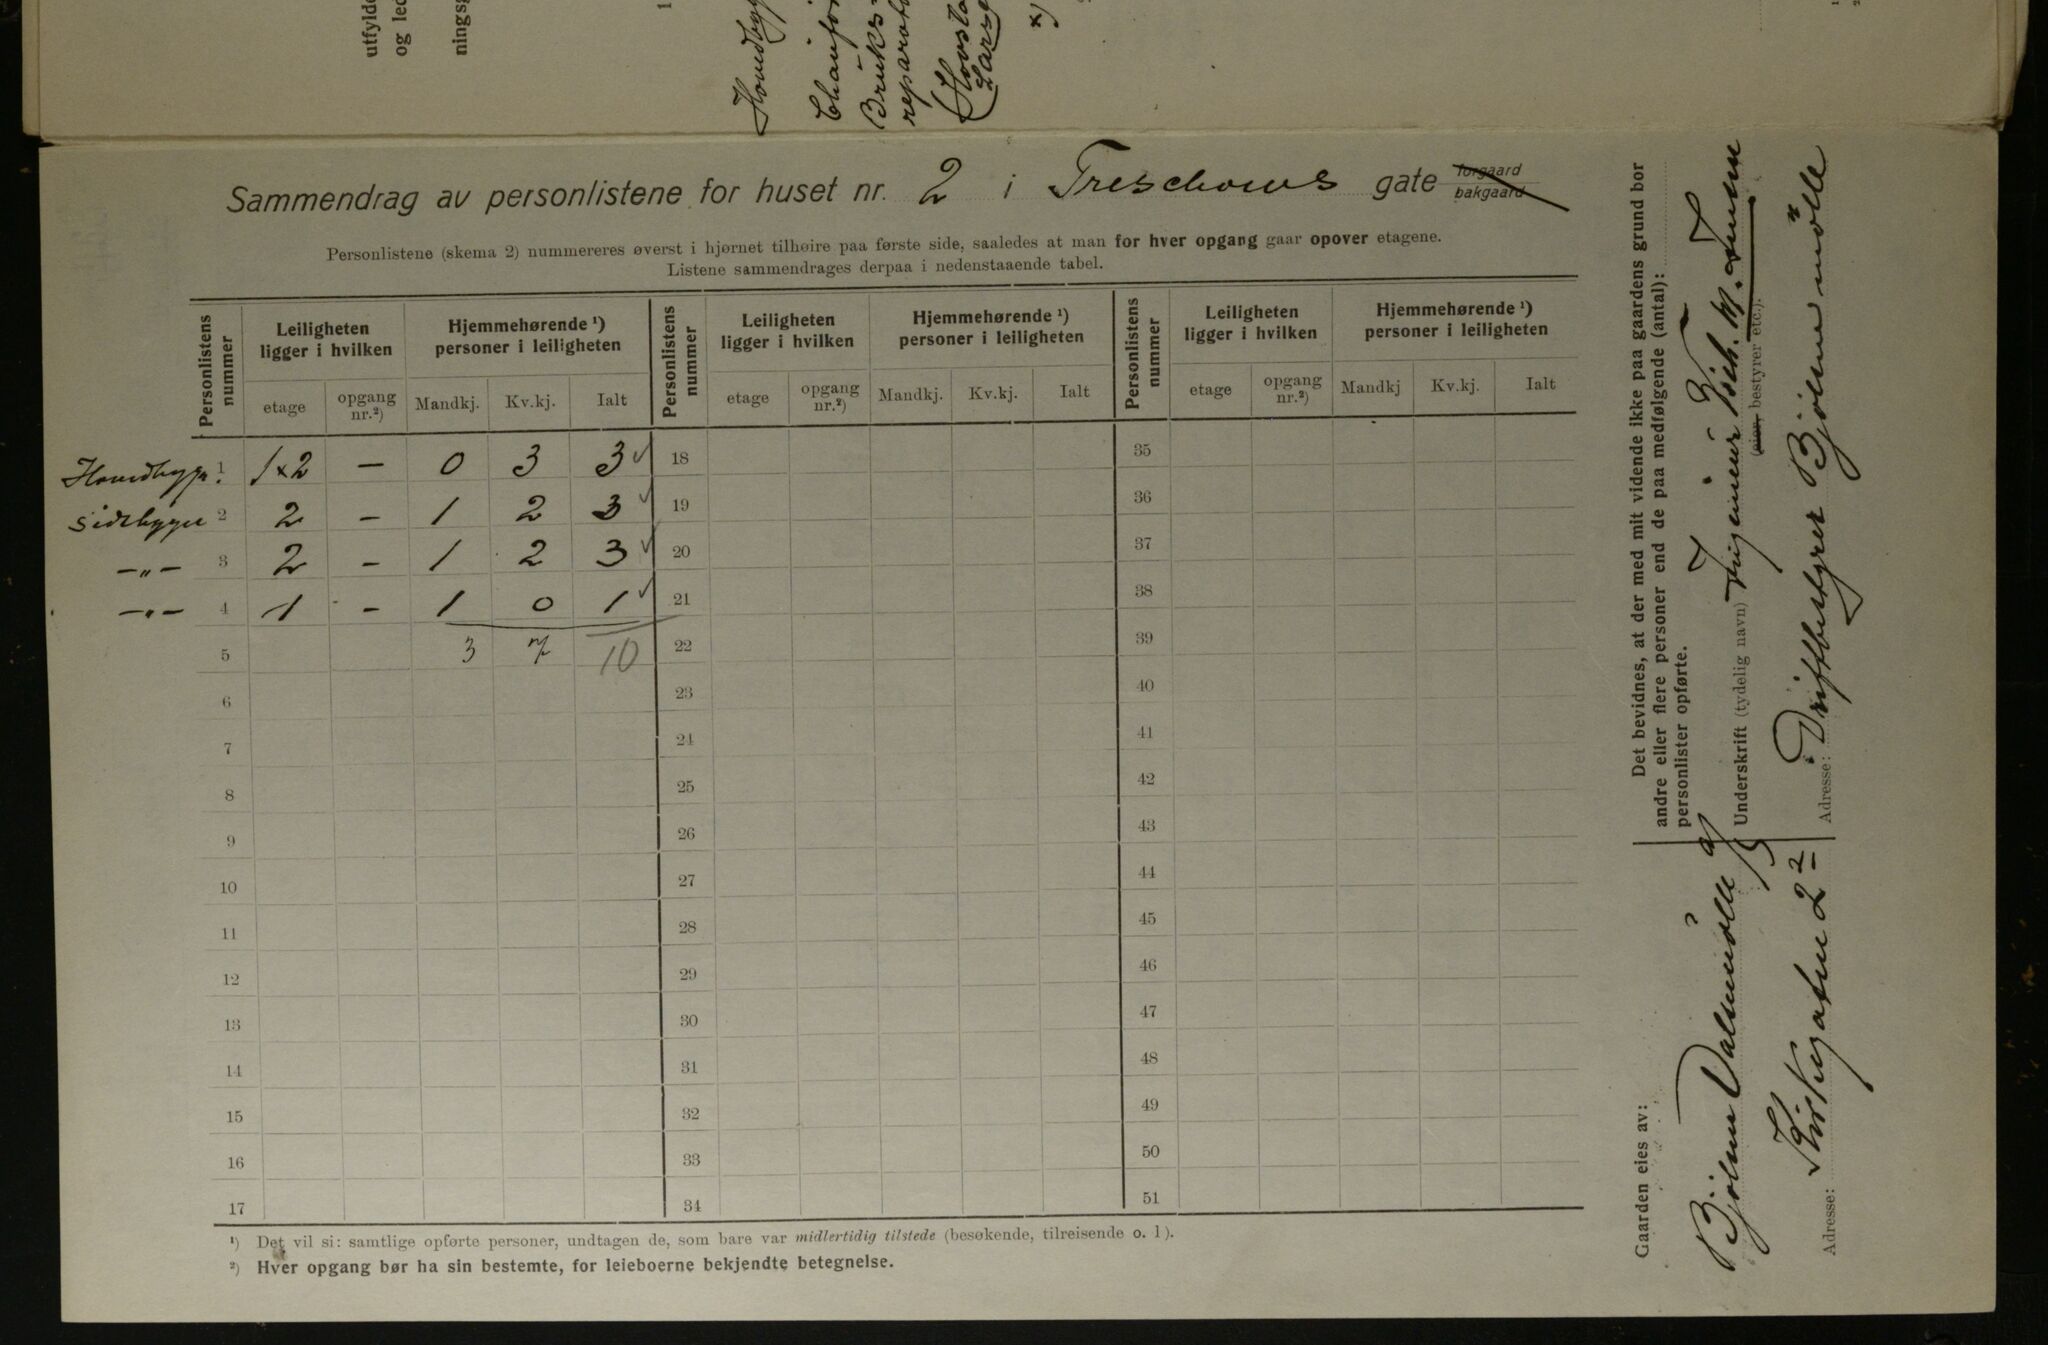 utfylde
og led
ningsg
1
Hovedbygn
Chauffø
Bruks
reparato
(Hovsta
Larse
*)
Sammendrag av personlistene for huset nr. 2 i Treschows gate forgaard bakgaard
Personlistene (skema 2) nummereres øverst i hjørnet tilhøire paa første side, saaledes at man for hver opgang gaar opover etagene.
Listene sammendrages derpaa i nedenstaaende tabel.
Personlistens nummer | Leiligheten ligger i hvilken | Hjemmehørende ¹) personer i leiligheten | Personlistens nummer | Leiligheten ligger i hvilken | Hjemmehørende ¹) personer i leiligheten | Personlistens nummer | Leiligheten ligger i hvilken | Hjemmehørende ¹) personer i leiligheten
etage | opgang nr.²) | Mandkj. | Kv.kj. | Ialt | etage | opgang nr.²) | Mandkj. | Kv.kj. | Ialt | etage | opgang nr.²) | Mandkj | Kv.kj. | Ialt
Hovedbygn. 1 | 1 x 2 | — | 0 | 3 | 3 ✓ | 18 | 35
Sidebygn 2 | 2 | – | 1 | 2 | 3 ✓ | 19 | 36
—„— 3 | 2 | – | 1 | 2 | 3 ✓ | 20 | 37
—„— 4 | 1 | – | 1 | 0 | 1 ✓ | 21 | 38
5 | 3 | 7 | 10 | 22 | 39
6 | 23 | 40
7 | 24 | 41
8 | 25 | 42
9 | 26 | 43
10 | 27 | 44
11 | 28 | 45
12 | 29 | 46
13 | 30 | 47
14 | 31 | 48
15 | 32 | 49
16 | 33 | 50
17 | 34 | 51
¹) Det vil si: samtlige opførte personer, undtagen de, som bare var midlertidig tilstede (besøkende, tilreisende o. l).
²) Hver opgang bør ha sin bestemte, for leieboerne bekjendte betegnelse.
Gaarden eies av:
Bjølsen Valsemølle A/S
Adresse: Kirkegaten 2²
Det bevidnes, at der med mit vidende ikke paa gaardens grund bor
andre eller flere personer end de paa medfølgende (antal):
personlister opførte.
Underskrift (tydelig navn) Ingeniør
(eier, bestyrer etc.).
Adresse: Driftbestyrer Bjølsenmølle